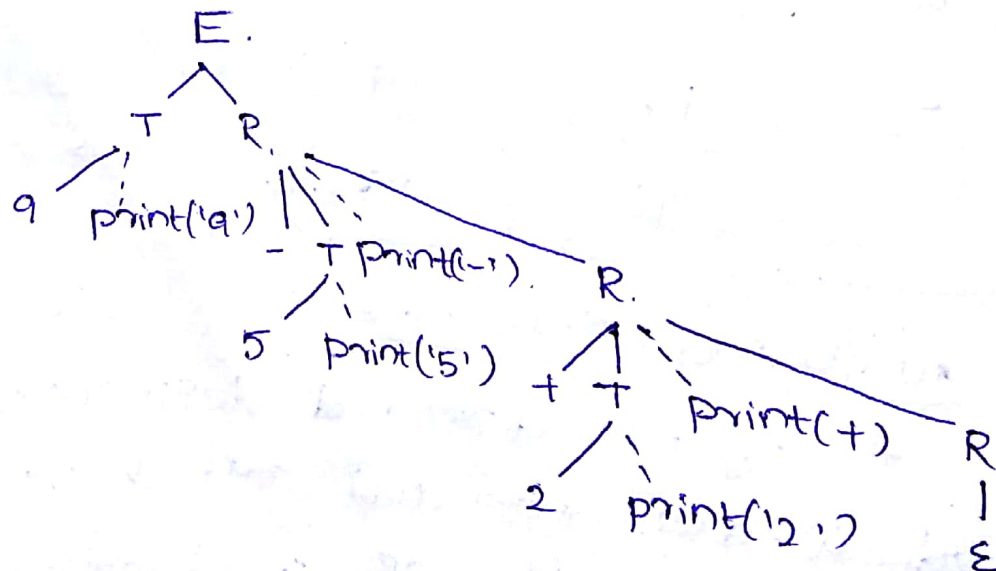 E.
T R.
9 print('9')
- T print('-').
R.
5 print('5')
+ T print(+)
R
2 print('2')
ε